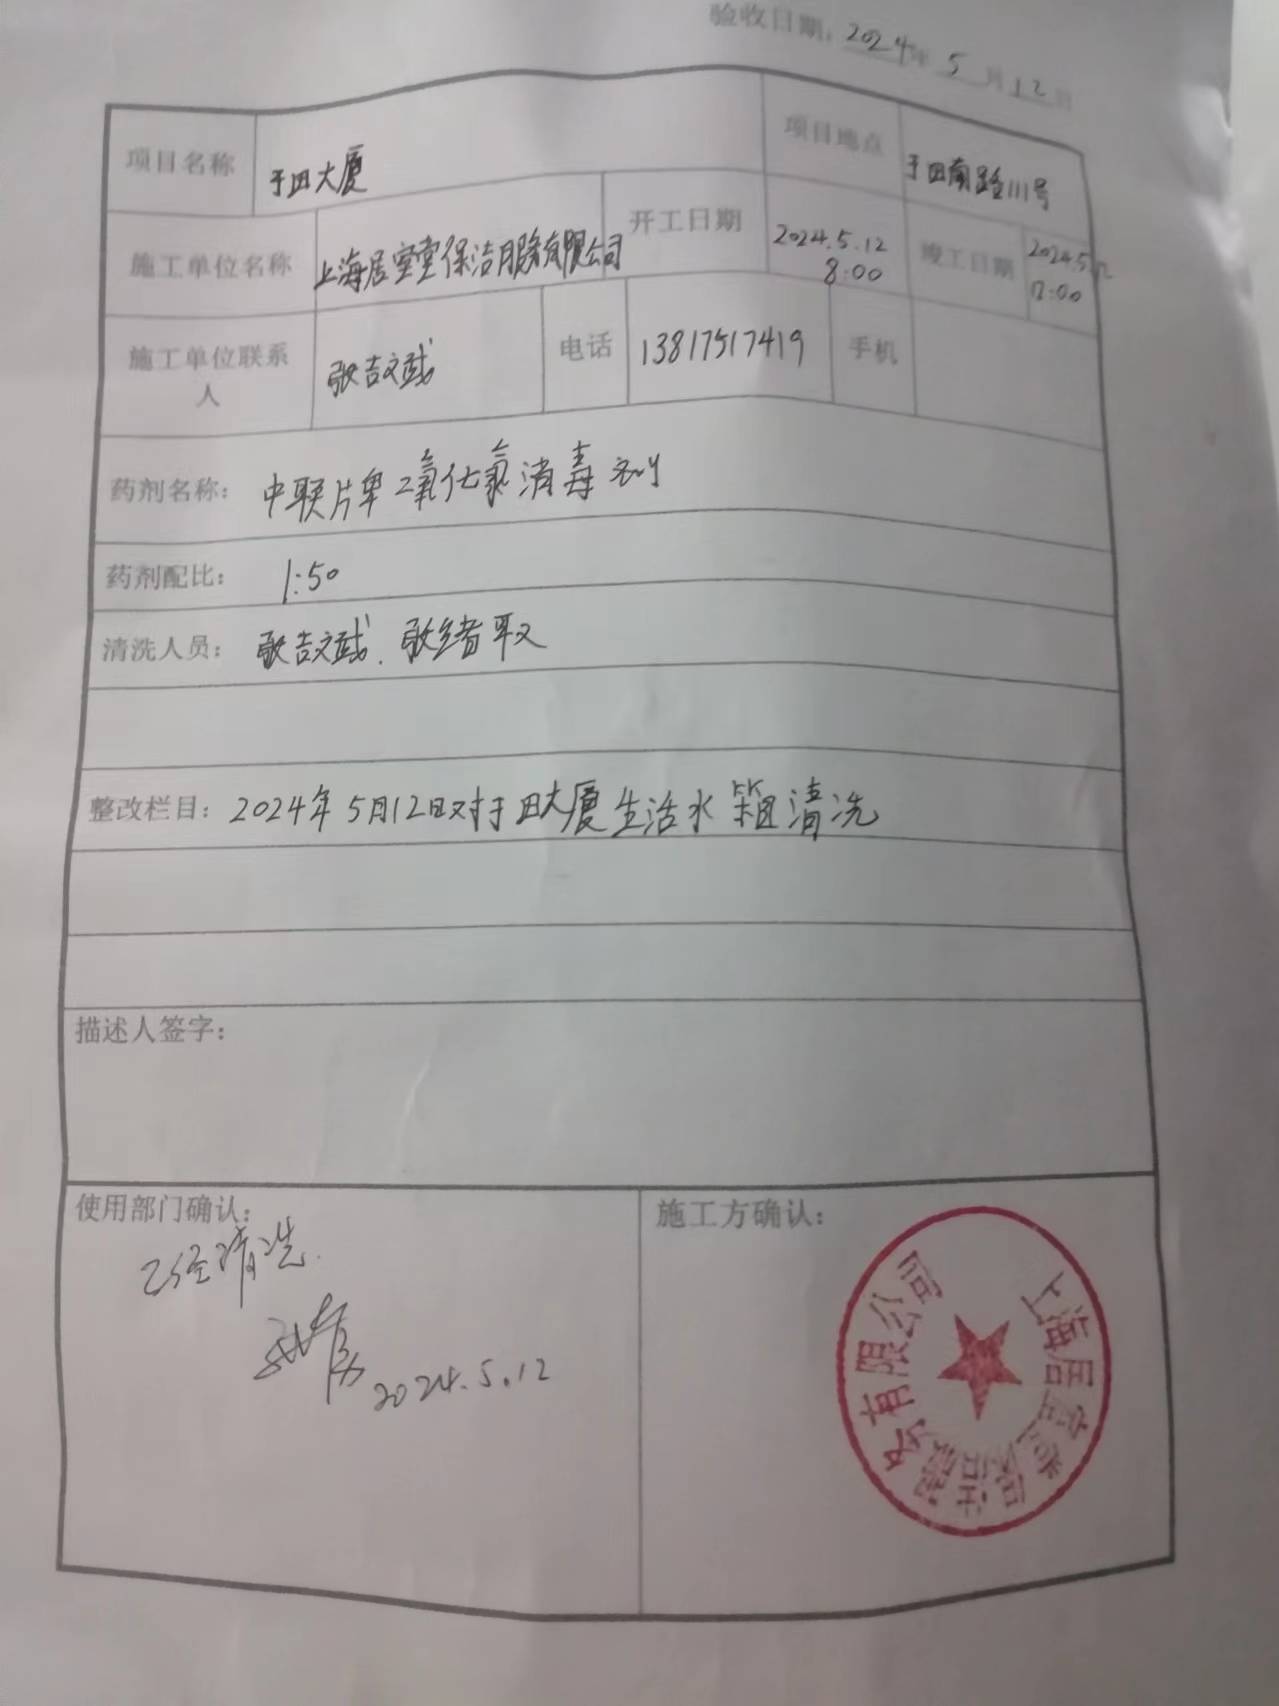 验收日期：2024年5月12日
项目名称 于田大厦 项目地点 于田南路111号
施工单位名称 上海居室堂保洁服务有限公司 开工日期 2024.5.12 8:00 竣工日期 2024.5.12
施工单位联系人 张吉斌 电话 13817517419 手机
药剂名称： 中联片单二氧化氯消毒剂
药剂配比： 1:50
清洗人员： 张吉斌.
整改栏目：2024年5月12日对于田大厦生活水箱清洗
描述人签字：
使用部门确认： 施工方确认：
已经清洗.
2024.5.12
上海居室堂保洁服务有限公司